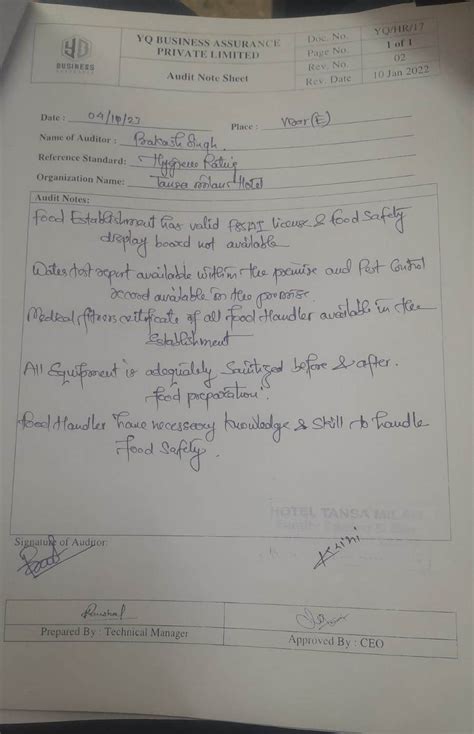 YQ
BUSINESS
ASSURANCE
YQ BUSINESS ASSURANCE
PRIVATE LIMITED
Audit Note Sheet
Doc. No. YQ/HR/17
Page No. 1 of 1
Rev. No. 02
Rev. Date 10 Jan 2022
Date : 04/10/23
Place : (E)
Name of Auditor : Prakash Singh.
Reference Standard: Hygiene Rating
Organization Name: Tansa Hotel
Audit Notes:
Food Establishment has valid FSSAI license & food Safety
display board not available
Water test report available within the premise and Pest Control
record available in the premise.
Medical fitness certificate of all food Handler available in the
Establishment
All Equipment is adequately Sanitized before & after.
food preparation.
Food Handler have necessary knowledge & Skill to handle
Food Safety.
HOTEL TANSA
Signature of Auditor:
Prepared By : Technical Manager
Approved By : CEO